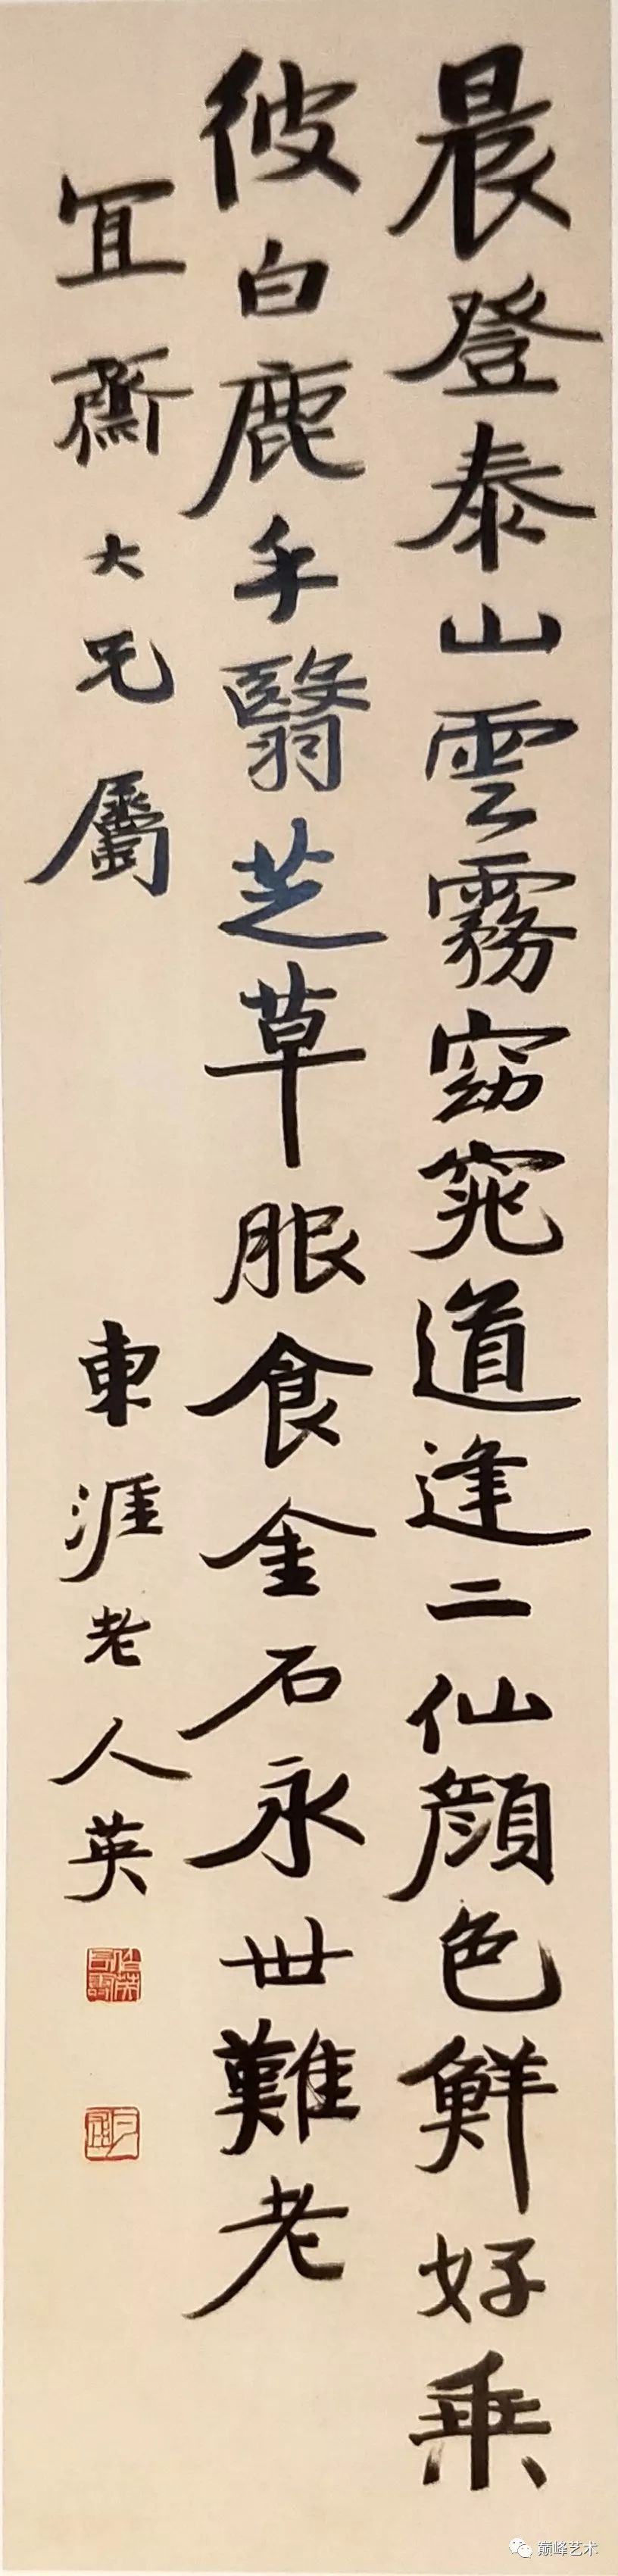 晨登泰山雲霧窈窕道逢二仙顏色鮮好乗
彼白鹿手翳芝草服食金石永世難老
宜齋大兄屬
東涯老人英
巅峰艺术